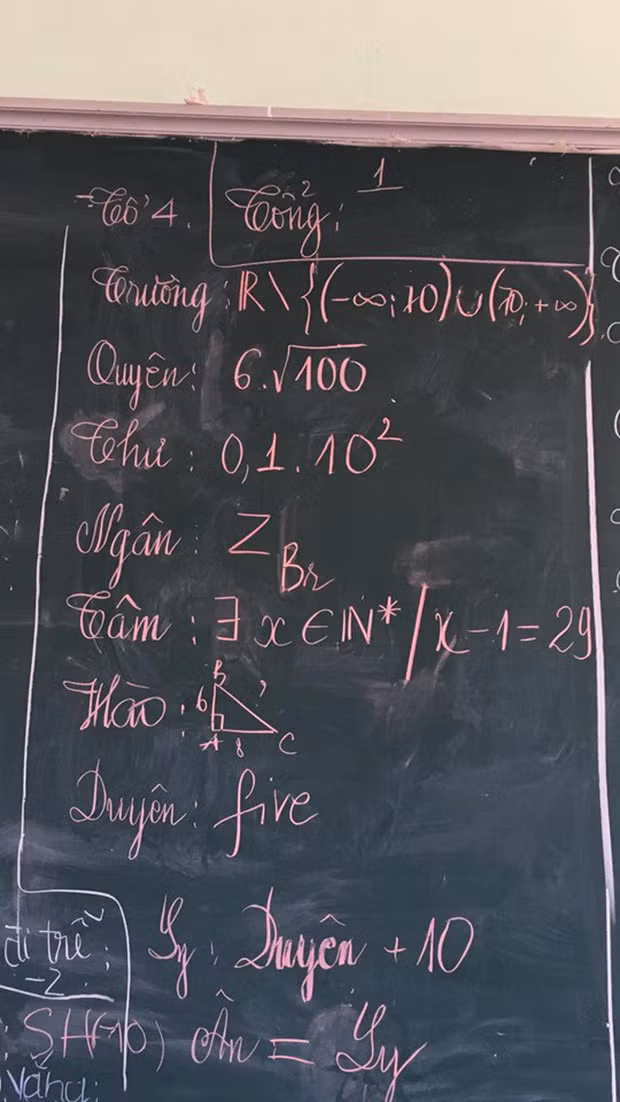 Tổ 4. Tổng:
1
Trường: R \ {(-∞; 10) ∪ (10; +∞)}
Quyên: 6.√100
Thư: 0,1.10²
Ngân: Z_Br
Tâm: ∃ x ∈ N* / x - 1 = 29
Hào: B 6 ? A 8 C
Duyên: five
đi trễ: Ly: Duyên + 10
-2
SH(-10) Ân = Ly